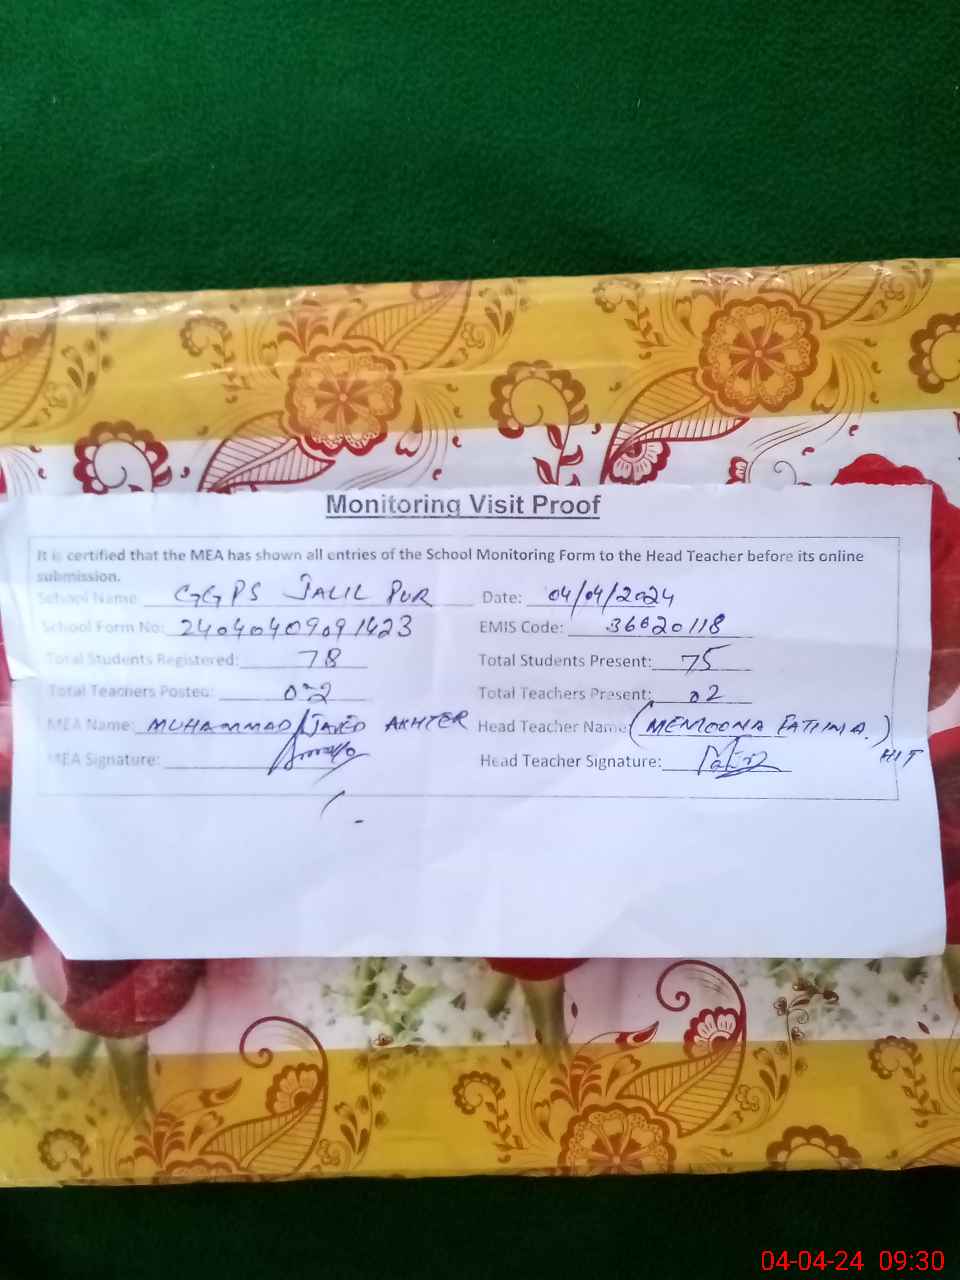 Monitoring Visit Proof
It is certified that the MEA has shown all entries of the School Monitoring Form to the Head Teacher before its online
submission.
School Name GGPS JALIL PUR Date: 04/04/2024
School Form No: 2404040909 1423 EMIS Code: 36620118
Total Students Registered: 78 Total Students Present: 75
Total Teachers Posted: 02 Total Teachers Present: 02
MEA Name: MUHAMMAD JAVED AKHTER Head Teacher Name (MEMOONA FATIMA.)
MEA Signature: Head Teacher Signature:
04-04-24 09:30